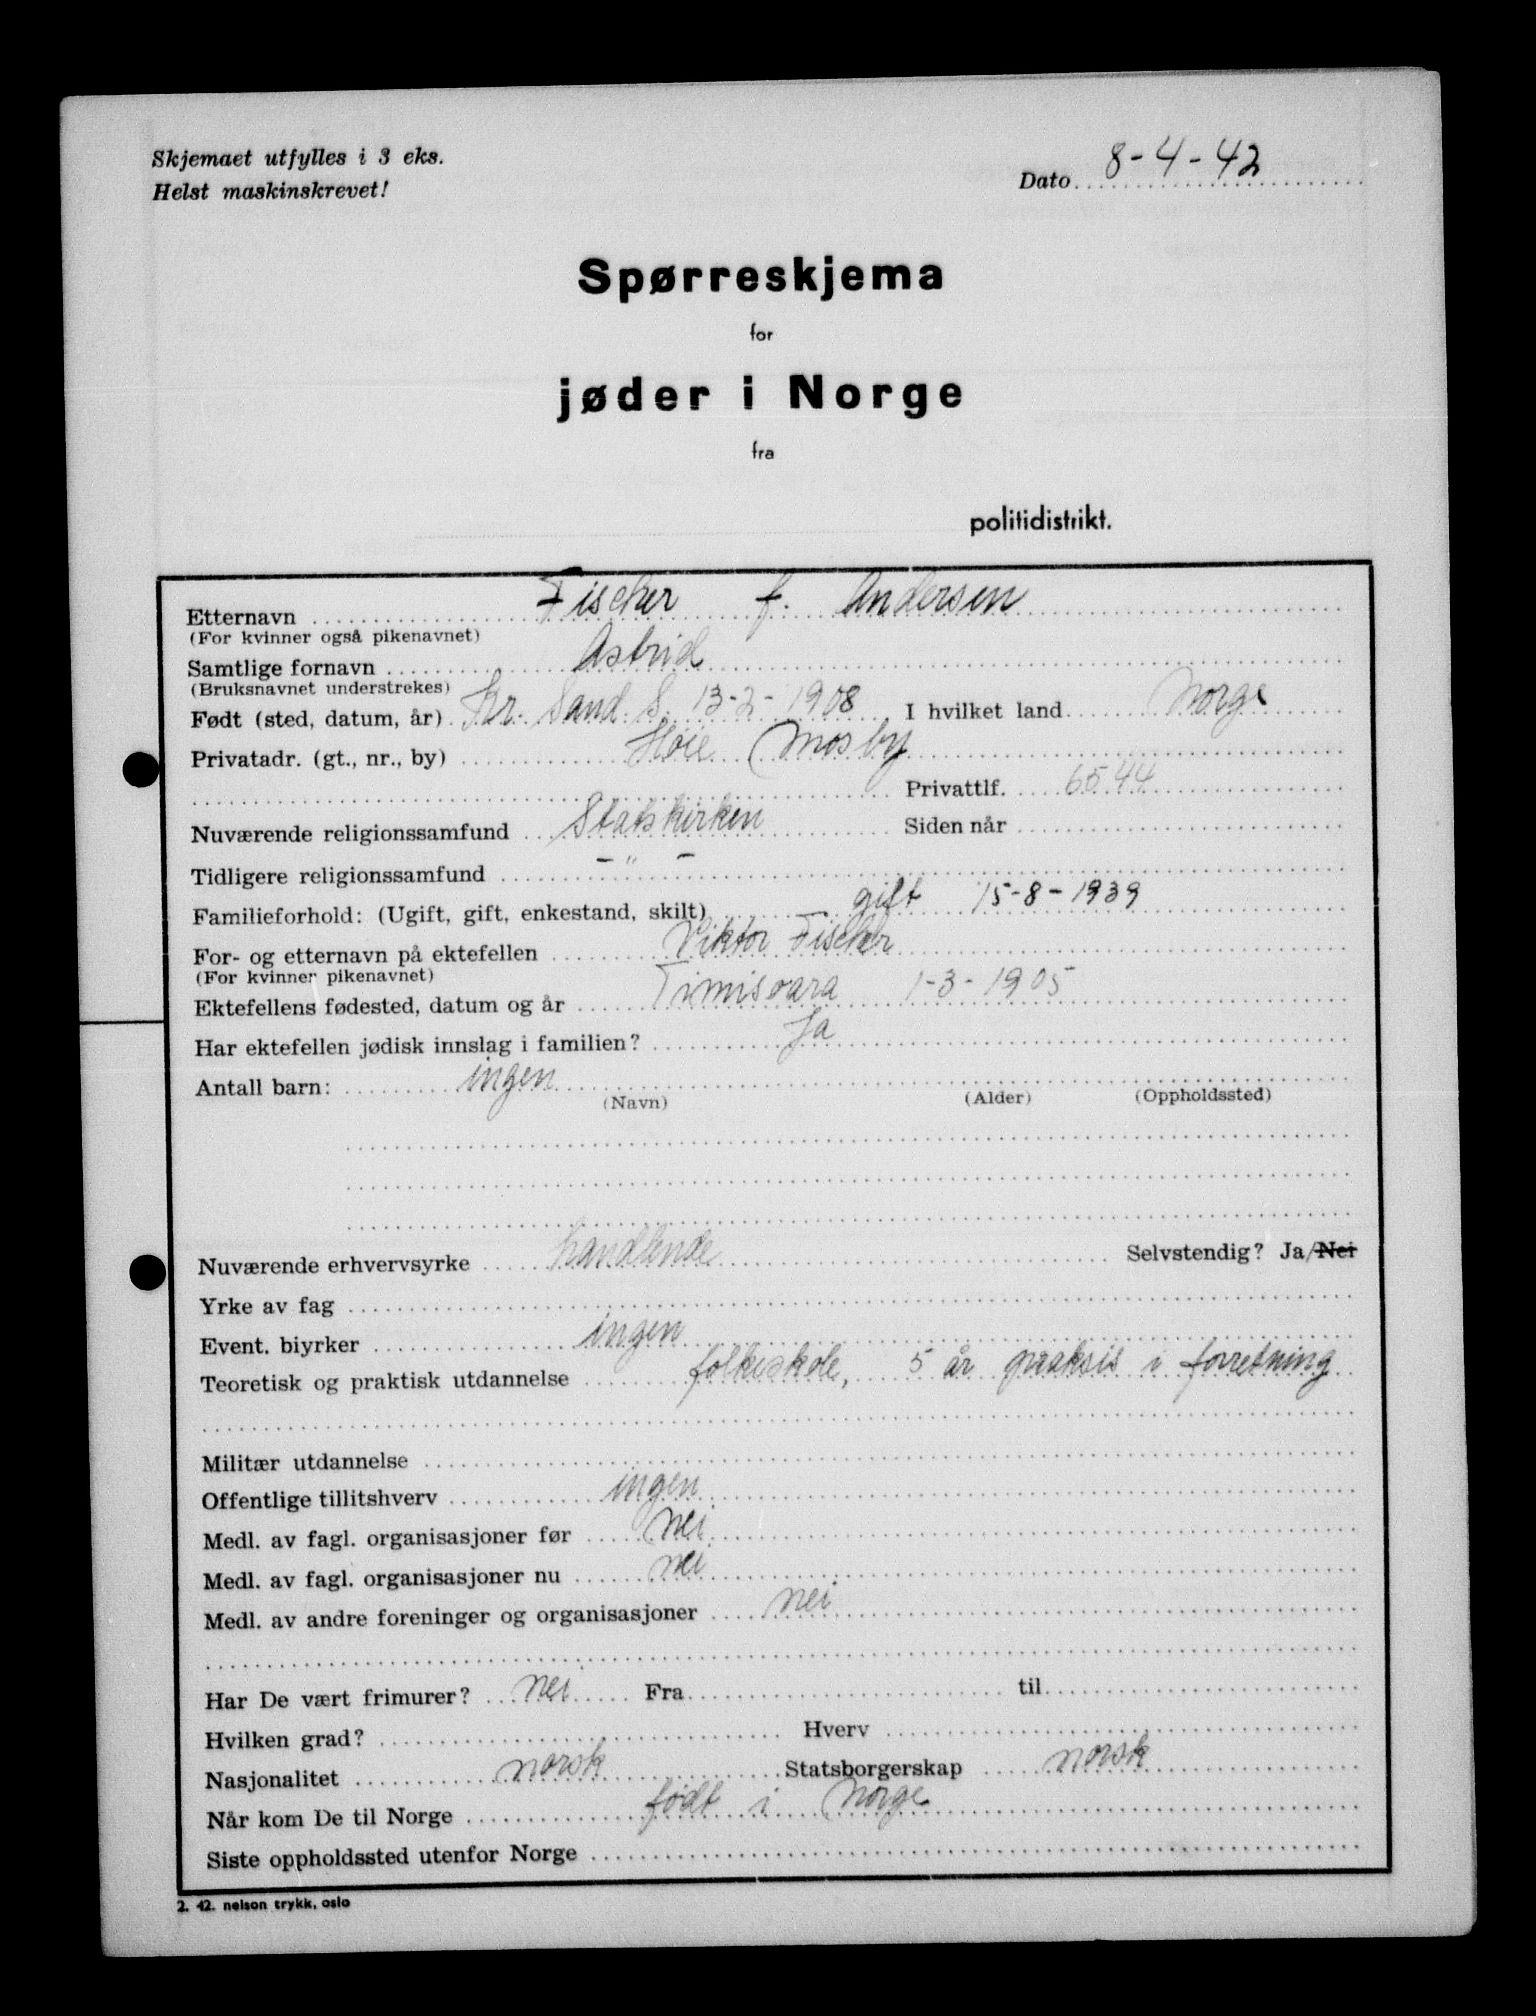 Skjemaet utfylles i 3 eks.
Helst maskinskrevet!
Dato 8-4-42
Spørreskjema
for
jøder i Norge
fra
politidistrikt.
Etternavn Fischer f. Andersen
(For kvinner også pikenavnet)
Samtlige fornavn Astrid
(Bruksnavnet understrekes)
Født (sted, datum, år) Kr. Sand. S. 13-2-1908 I hvilket land Norge
Privatadr. (gt., nr., by) Høie Mosby
Privattlf. 6544
Nuværende religionssamfund Statskirken Siden når
Tidligere religionssamfund -"-
Familieforhold: (Ugift, gift, enkestand, skilt) gift 15-8-1939
For- og etternavn på ektefellen Viktor Fischer
(For kvinner pikenavnet)
Ektefellens fødested, datum og år Timisoara 1-3-1905
Har ektefellen jødisk innslag i familien? Ja
Antall barn: ingen
(Navn) (Alder) (Oppholdssted)
Nuværende erhvervsyrke handlende Selvstendig? Ja/Nei
Yrke av fag
Event. biyrker ingen
Teoretisk og praktisk utdannelse folkeskole, 5 år praksis i forretning
Militær utdannelse
Offentlige tillitshverv ingen
Medl. av fagl. organisasjoner før nei
Medl. av fagl. organisasjoner nu nei
Medl. av andre foreninger og organisasjoner nei
Har De vært frimurer? nei Fra til
Hvilken grad? Hverv
Nasjonalitet norsk Statsborgerskap norsk
Når kom De til Norge født i Norge
Siste oppholdssted utenfor Norge
2. 42. nelson trykk, oslo